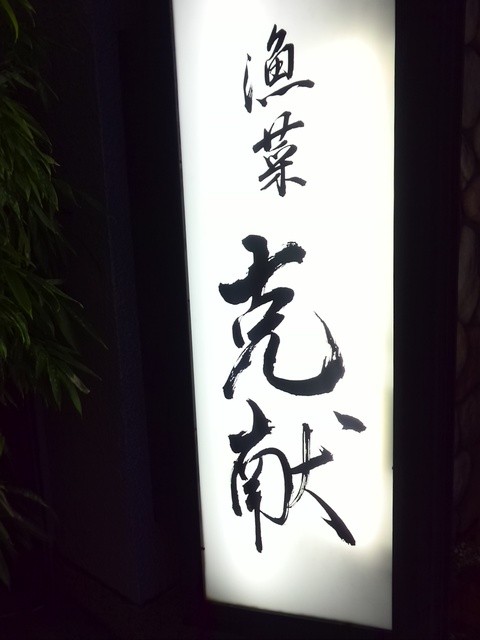 漁菜
克献